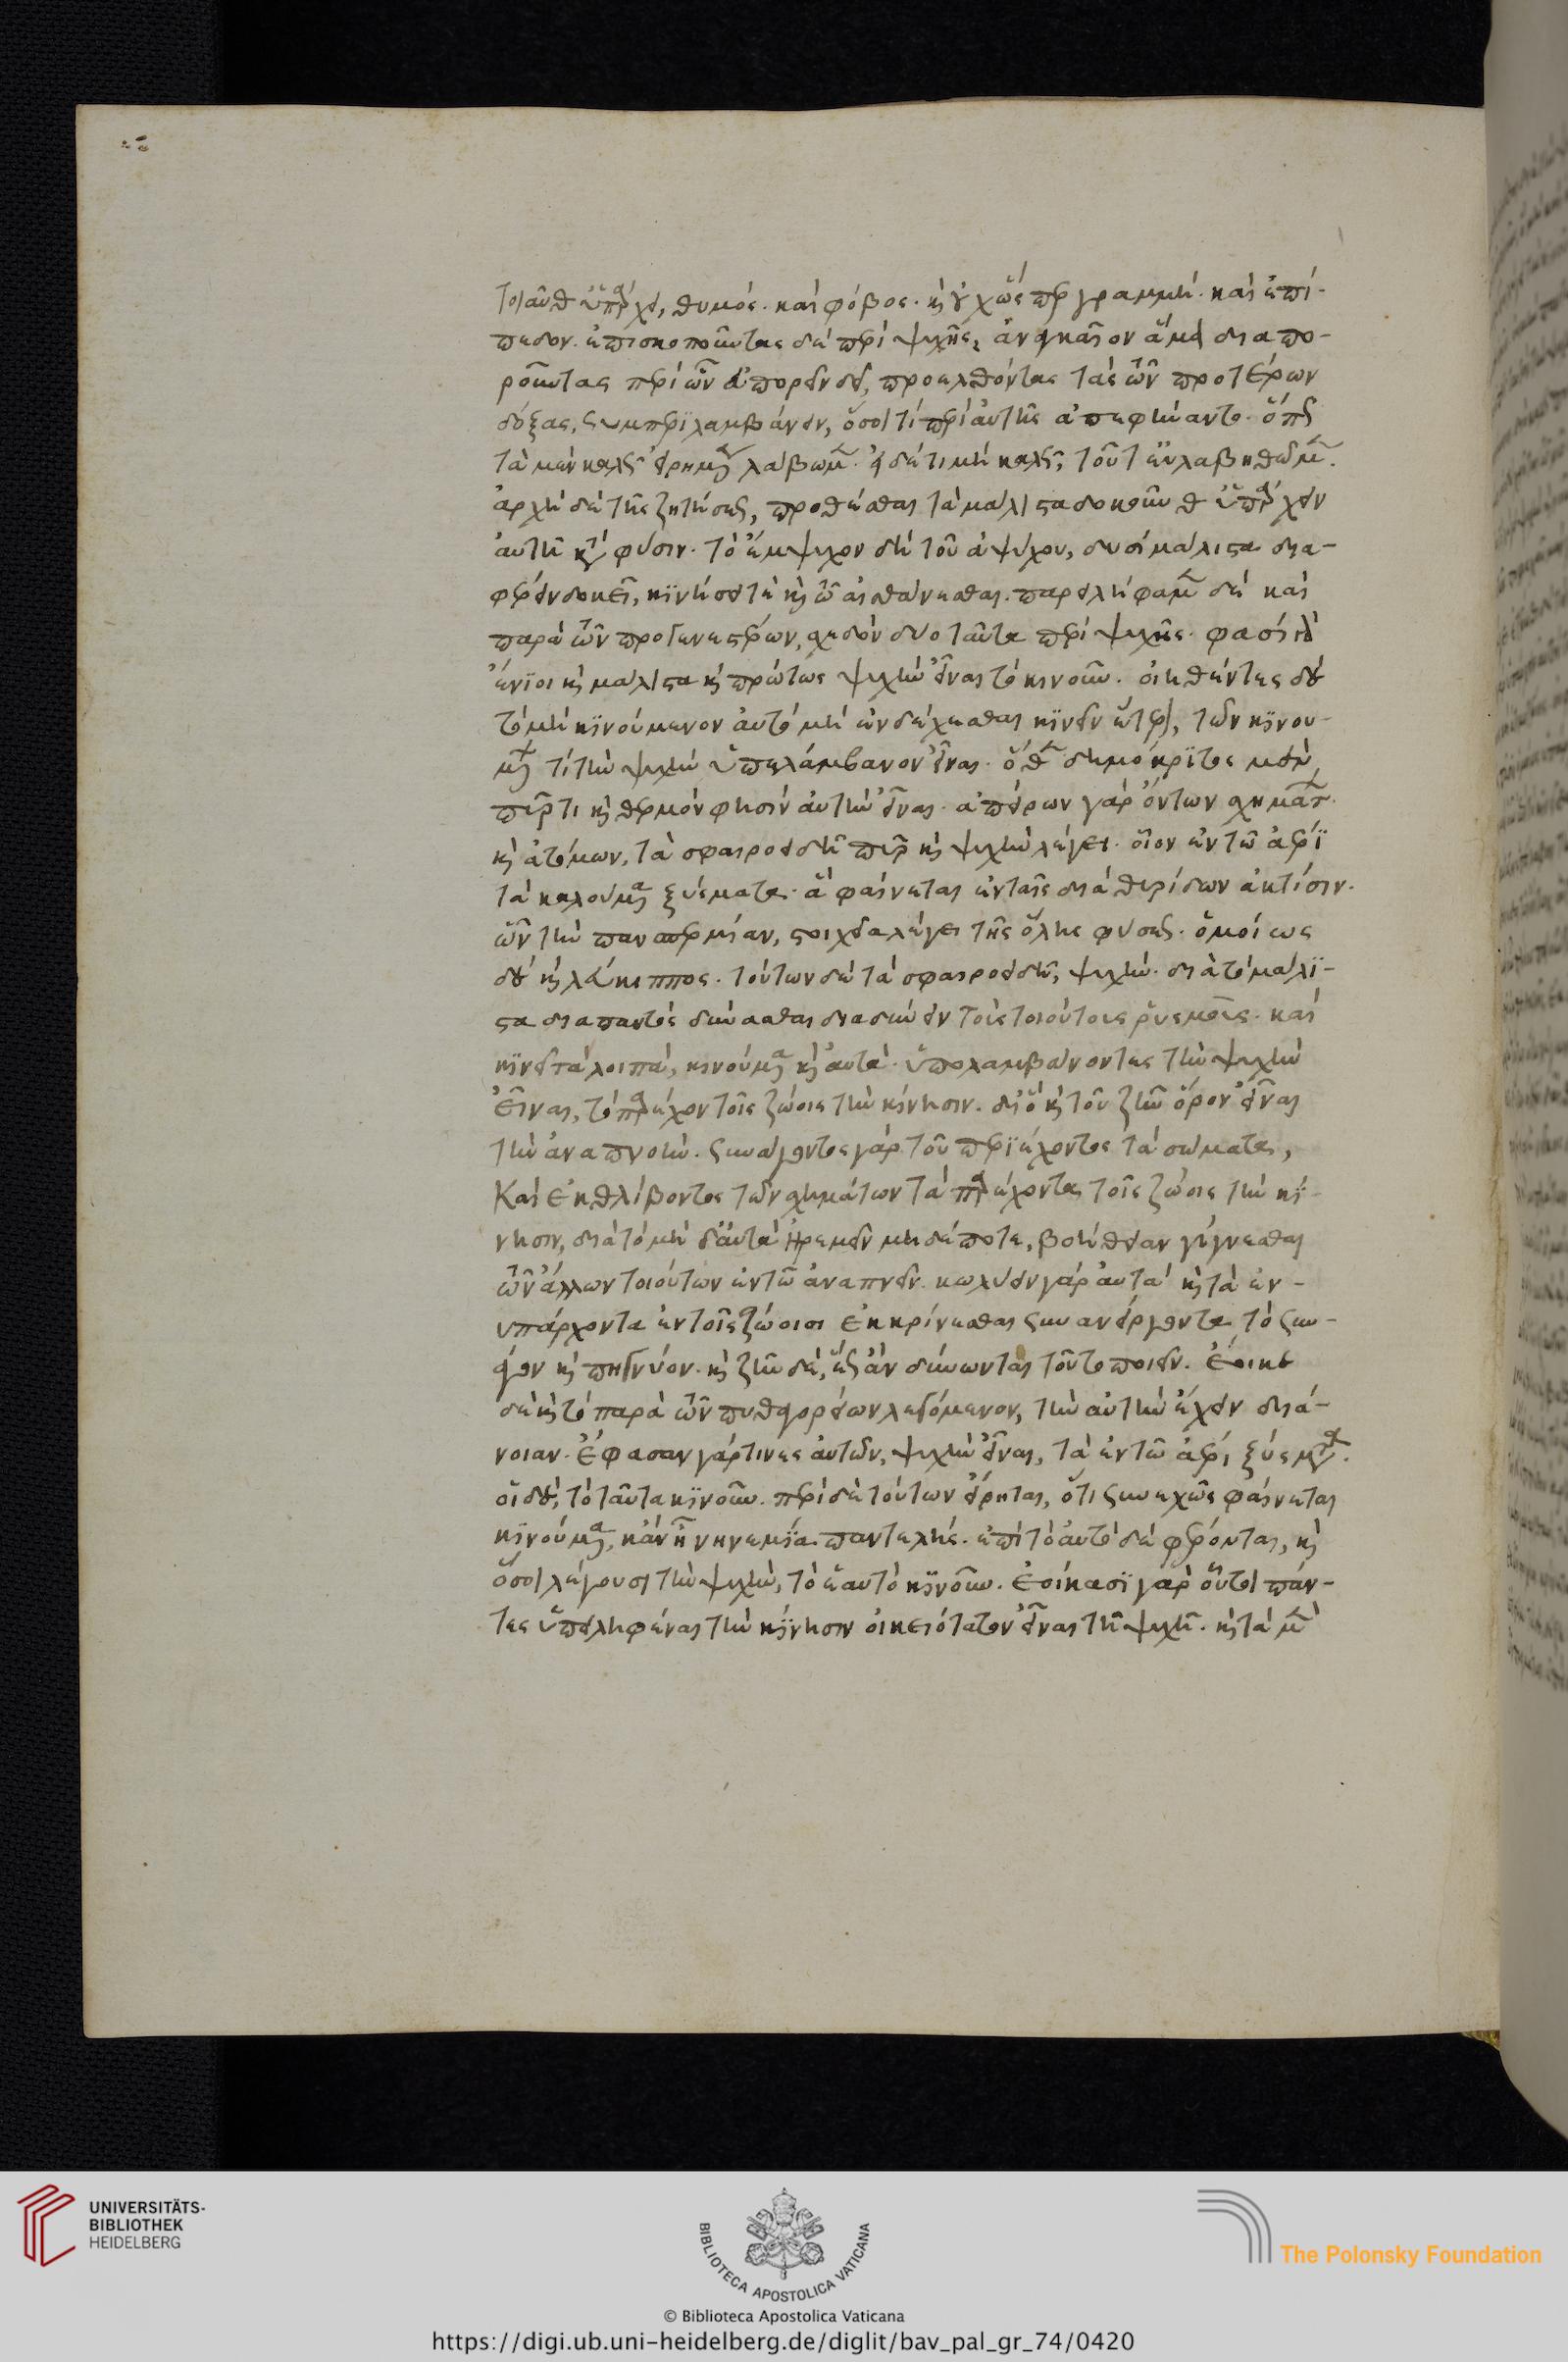 τοιαῦθ ὑπάρχει, θυμός. καὶ φόβος. κ οὐχ ὥσπερ γραμμὴ. καὶ ἐπί-
πεδον. ἐπισκοποῦντας δὲ περὶ ψυχῆς, ἀναγκαῖον ἅμα διαπο-
ροῦντας περὶ ὧν ἀπορεῖν δεῖ, προελθόντας τὰς τῶν προτέρων
δόξας, συμπεριλαμβάνειν, ὅσοι τὶ περὶ αὐτῆς ἀπεφήναντο. ὅπως
τὰ μὲν καλῶς εἰρημένα λάβωμεν. εἰ δέ τι μὴ καλῶς, τοῦτ εὐλαβηθῶμεν.
ἀρχὴ δὲ τῆς ζητήσεως, προθέσθαι τὰ μάλιστα δοκοῦνθ ὑπάρχειν
αὐτῇ κατὰ φύσιν. τὸ ἔμψυχον δὴ τοῦ ἀψύχου, δυσὶ μάλιστα δια-
φέρειν δοκεῖ, κινήσει τὲ καὶ τῶ αἰσθάνεσθαι. παρειλήφαμεν δὲ καὶ
παρὰ τῶν προγενεστέρων, σχεδὸν δύο ταῦτα περὶ ψυχῆς. φασὶ γὰρ
ἔνιοι καὶ μάλιστα καὶ πρώτως ψυχὴν εἶναι τὸ κινοῦν. οἰηθέντες δὲ
τὸ μὴ κινούμενον αὐτὸ μὴ ἐνδέχεσθαι κινεῖν ἕτερον, τῶν κινου-
μένων τὶ τὴν ψυχὴν ὑπελάμβανον εἶναι. ὅθεν δημόκριτος μὲν
πῦρ τι καὶ θερμόν φησὶν αὐτὴν εἶναι. ἀπείρων γὰρ ὄντων σχημάτων
καὶ ἀτόμων, τὰ σφαιροειδῆ πῦρ καὶ ψυχὴν λέγει. οἷον ἐν τῶ ἀέρι
τὰ καλούμενα ξύσματα. ἃ φαίνεται ἐν ταῖς διὰ θυρίδων ἀκτίσιν.
ὧν τὴν πανσπερμίαν, στοιχεῖα λέγει τῆς ὅλης φύσεως. ὁμοίως
δὲ καὶ λεύκιππος. τούτων δὲ τὰ σφαιροειδῆ, ψυχήν. διὰ τὸ μάλι-
στα διαπαντὸς δύνασθαι διαδύνειν τοὺς τοιούτους ῥυσμοὺς. καὶ
κινεῖν τὰ λοιπὰ, κινούμενα καὶ αὐτά. ὑπολαμβάνοντες τὴν ψυχὴν
εἶναι, τὸ παρέχον τοῖς ζώοις τὴν κίνησιν. διὸ καὶ τοῦ ζῆν ὅρον εἶναι
τὴν ἀναπνοὴν. συνάγοντος γὰρ τοῦ περιέχοντος τὰ σώματα,
καὶ ἐκθλίβοντος τῶν σχημάτων τὰ παρέχοντα τοῖς ζώοις τὴν κί-
νησιν, διὰ τὸ μὴ δ αὐτὰ ἠρεμεῖν μηδέποτε, βοήθειαν γίγνεσθαι
τῶν ἄλλων τοιούτων ἐν τῶ ἀναπνεῖν. κωλύειν γὰρ αὐτὰ καὶ τὰ ἐν-
υπάρχοντα ἐν τοῖς ζώοισι ἐκκρίνεσθαι συνανείργοντα τὸ συν-
άγον καὶ πηγνύον. καὶ ζῆν δὲ, ἕως ἂν δύνωνται τοῦτο ποιεῖν. ἔοικε
δὲ καὶ τὸ παρὰ τῶν πυθαγορείων λεγόμενον, τὴν αὐτὴν ἔχειν διά-
νοιαν. ἔφασαν γάρ τινες αὐτῶν, ψυχὴν εἶναι, τὰ ἐν τῶ ἀέρι ξύσματα.
οἱ δὲ, τὸ ταῦτα κινοῦν. περὶ δὲ τούτων εἴρηται, ὅτι συνεχῶς φαίνεται
κινούμενα, κἂν ἦ νηνεμία παντελὴς. ἐπὶ τὸ αὐτὸ δὲ φέρονται, καὶ
ὅσοι λέγουσι τὴν ψυχὴν, τὸ ἑαυτὸ κινοῦν. ἐοίκασι γὰρ οὗτοι πάν-
τες ὑπειληφέναι τὴν κίνησιν οἰκειότατον εἶναι τῇ ψυχῇ. καὶ τὰ μὲν
UNIVERSITÄTS-
BIBLIOTHEK
HEIDELBERG
BIBLIOTECA APOSTOLICA VATICANA
The Polonsky Foundation
© Biblioteca Apostolica Vaticana
https://digi.ub.uni-heidelberg.de/diglit/bav_pal_gr_74/0420